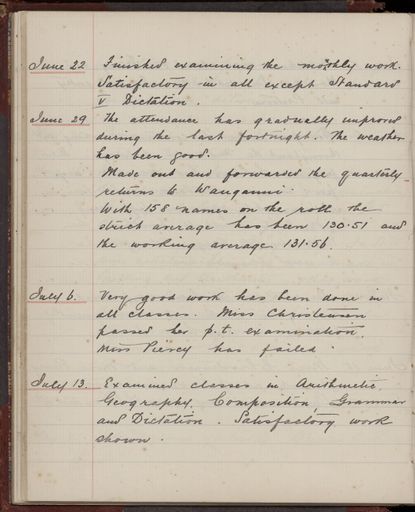 June 22 Finished examining the monthly work.
Satisfactory in all except Standard
V Dictation.
June 29 The attendance has gradually improved
during the last fortnight. The weather
has been good.
Made out and forwarded the quarterly
returns to Wanganui
With 158 names on the roll the
strict average has been 130.51 and
the working average 131.56
July 6. Very good work has been done in
all classes. Miss Christensen
passed her p.t. examination.
Miss Piercy has failed.
July 13. Examined classes in Arithmetic,
Geography, Composition, Grammar
and Dictation. Satisfactory work
shown.